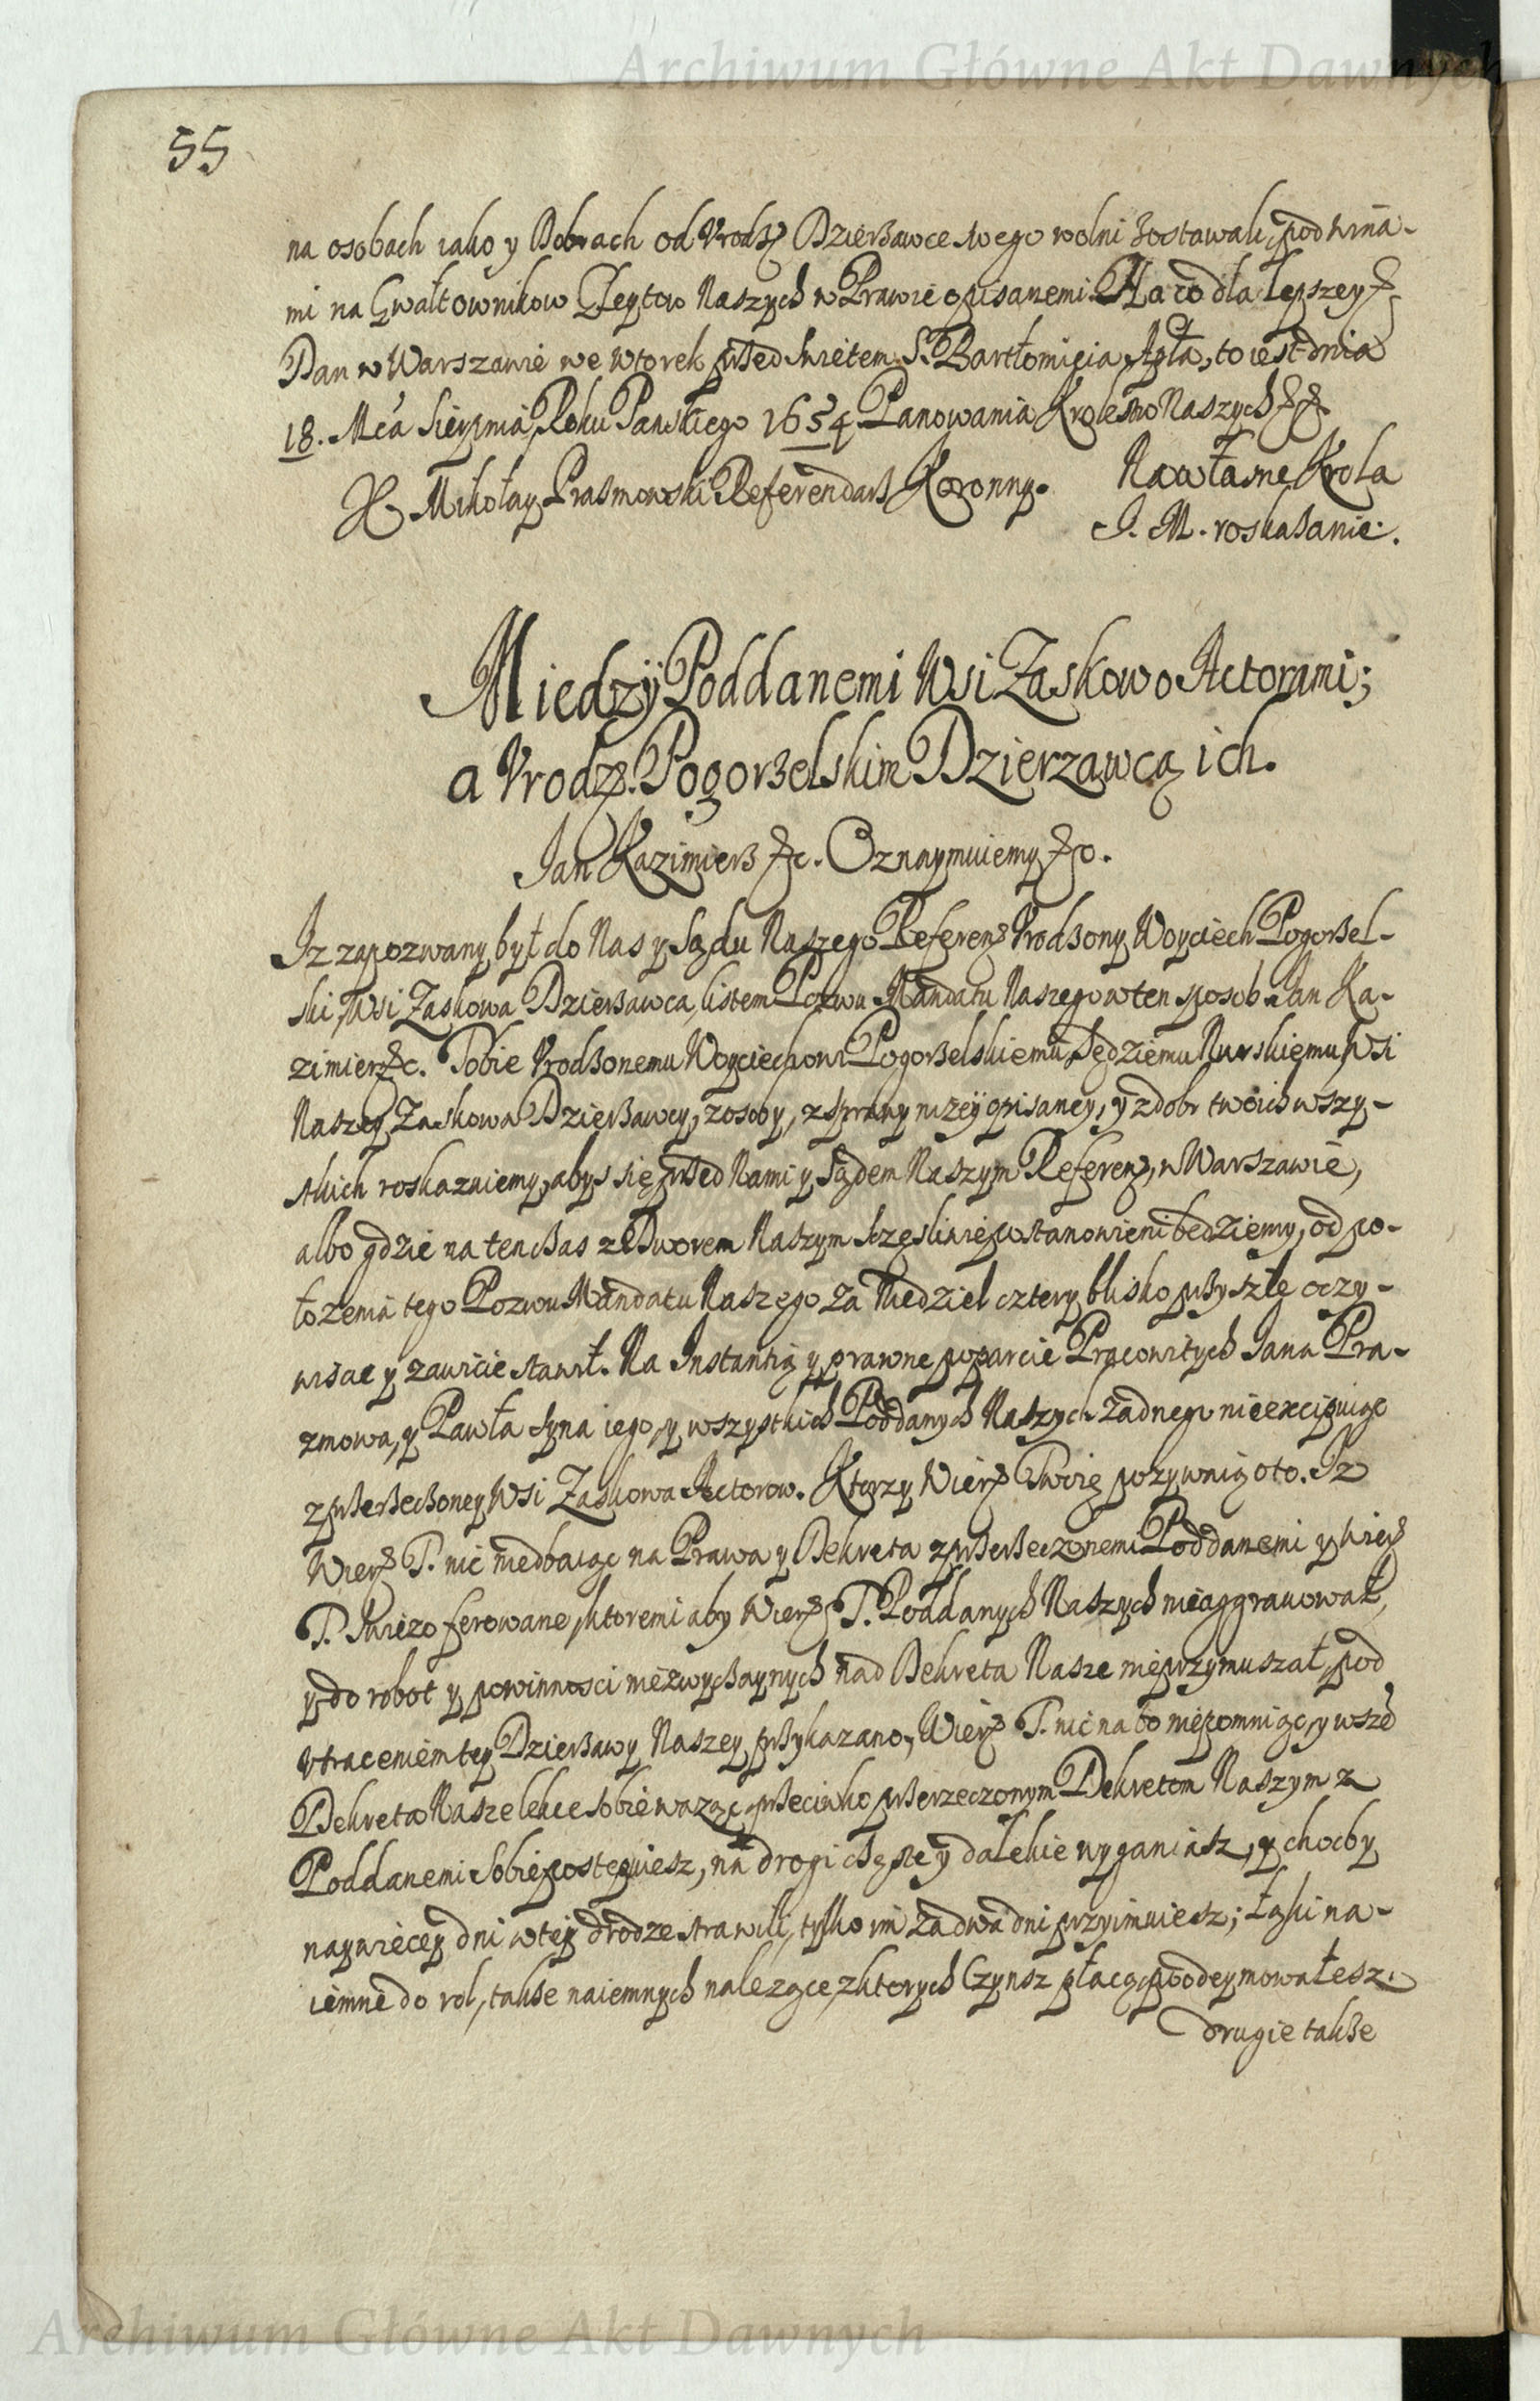 Archiwum Główne Akt Dawnych
55
na osobach iako y Dobrach od Vrodz. Dzierzawce swego wolni zostawali, pod wina-
mi na Gwałtownikow Gleytow Naszych w Prawie opisanemi. Na co dla lepszey &
Dan w Warszawie we wtorek przed Swiętem S. Bartłomieia Apła, to iest dnia
18. Mca Sierpnia, Roku Panskiego 1654 Panowania Krolestw Naszych &&.
X. Mikołay Prasmowski Referendarz Koronny.
Na własne Krola
J. M. roskazanie.
Między Poddanemi Wsi Zaskowo Actorami;
a Vrodz. Pogorzelskim Dzierzawcą ich.
Jan Kazimierz &c. Oznaymuiemy &c.
Iz zapozwany był do Nas y Sądu Naszego Referen. Vrodzony Woyciech Pogorzel-
ski, Wsi Zaskowa Dzierzawca, listem Pozwu Mandatu Naszego w ten sposob. Jan Ka-
zimierz &c. Tobie Vrodzonemu Woyciechowi Pogorzelskiemu Sędziemu Nurskiemu, Wsi
Naszey Zaskowa Dzierzawcy, z osoby, z sprawy nizey opisaney, y z dobr twoich wszy-
stkich roskazuiemy, abys się przed Nami y Sądem Naszym Referen. w Warszawie,
albo gdzie na ten czas z Dworem Naszym szczęsliwie postanowieni bedziemy, od po-
łozenia tego Pozwu Mandatu Naszego za Niedziel cztery blisko przyszłe oczy-
wisce y zawicie stawił. Na Instantią y prawne poparcie Pracowitych Jana Pra-
zmowa, y Pawła syna iego, y wszystkich Poddanych Naszych zadnego nieexcipuiąc
z przerzeczoney Wsi Zaskowa Actorow. Ktorzy Wierz. Twoię pozywaią o to. Iz
Wierz. T. nic niedbaiąc na Prawa y Dekreta z przerzeczonemi Poddanemi y Wierz.
T. swiezo ferowane, ktoremi aby Wierz. T. Poddanych Naszych nieaggrauował,
y do robot y powinnosci niezwyczaynych nad Dekreta Nasze nieprzymuszał, pod
vtraceniem tey Dzierzawy Naszey przykazano, Wierz. T. nic na to niepomniąc, y wsze
Dekreta Nasze lekce sobie waząc, przeciwko przerzeczonym Dekretom Naszym z
Poddanemi sobie postępuiesz, na drogi częste y dalekie wyganiasz, y chocby
naywiecey dni w tey drodze strawili, tylko im za dwa dni przyimuiesz; łąki na-
iemne do rol, takze naiemnych nalezące, z ktorych Czynsz płacą, poodeymowałesz.
drugie takze
Archiwum Główne Akt Dawnych